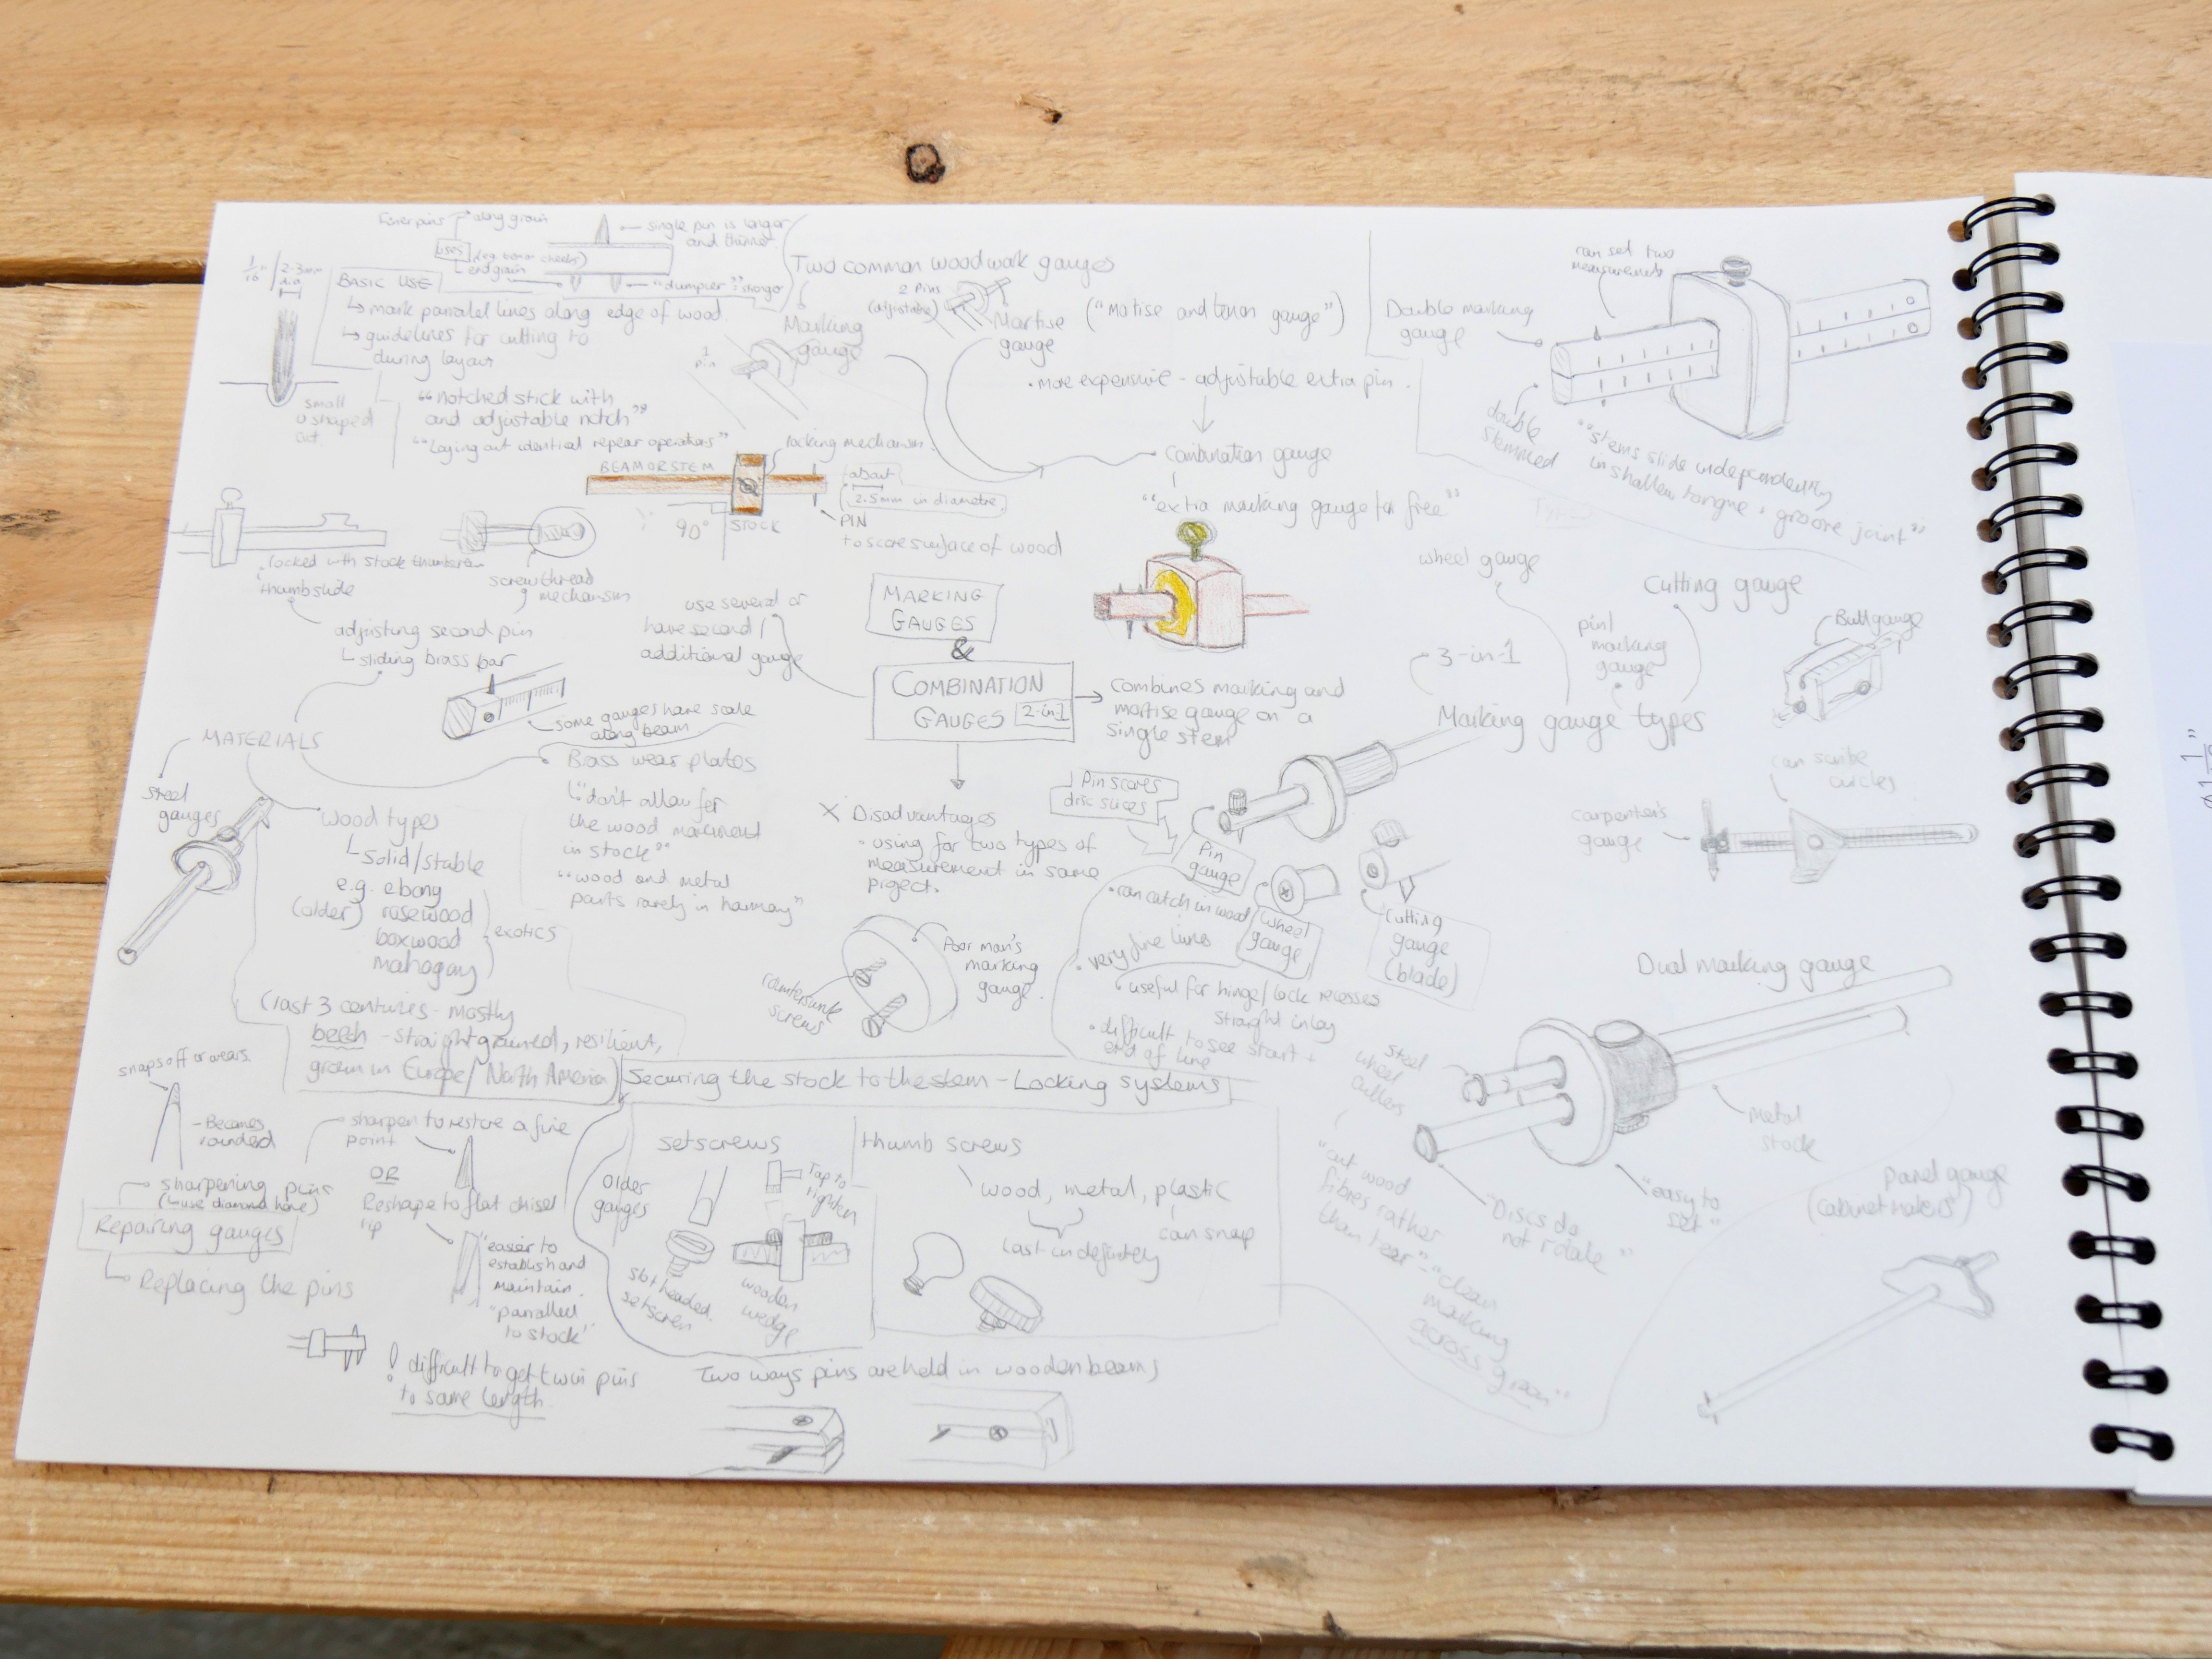 Finer pins
along grain
uses
end grain
single pin is longer
and thinner
"dumpier" stronger
1/16" / 2-3mm
dia
BASIC USE
↳ mark parralel lines along edge of wood
↳ guidelines for cutting to
during layout
small
U shaped
cut
"notched stick with
and adjustable notch"
"Laying out identical repeat operations"
Two common woodwork gauges
Marking
gauge
1
pin
2 Pins
(adjustable)
Mortise
gauge
("Mortise and tenon gauge")
• more expensive - adjustable extra pin.
Combination gauge
"extra marking gauge for free"
can set two
measurements
Double marking
gauge
double
stemmed
"stems slide independently
in shallow tongue + groove joint"
locking mechanism
BEAM OR STEM
about
2.5mm in diametre
90°
STOCK
PIN
to score surface of wood
locked with stock thumbscrew
thumbslide
screw thread
mechanism
adjusting second pin
↳ sliding brass bar
some gauges have scale
along beam
use several or
have second /
additional gauge
MARKING
GAUGES
&
COMBINATION
GAUGES 2-in-1
combines marking and
mortise gauge on a
single stem
X Disadvantages
• using for two types of
measurement in same
project.
Poor man's
marking
gauge.
countersunk
screws
MATERIALS
steel
gauges
Wood types
↳ Solid/stable
e.g. ebony
(older) rosewood
boxwood
mahogany
exotics
(last 3 centuries - mostly
beech - straight grained, resilient,
grown in Europe/North America)
Brass wear plates
↳ "don't allow for
the wood movement
in stock"
"wood and metal
parts rarely in harmony"
wheel gauge
Cutting gauge
3-in-1
pin/
marking
gauge
Marking gauge types
Bull gauge
can scribe
circles
carpenter's
gauge
Pin scores
disc slices
Pin
gauge
• can catch in wood
Wheel
gauge
Cutting
gauge
(blade)
• very fine lines
↳ useful for hinge/lock recesses
straight inlay
• difficult to see start +
end of line
Dual marking gauge
Steel
wheel
cutters
"cut wood
fibres rather
than tear" - "clean
marking
across grain"
"Discs do
not rotate"
"easy to
set"
Metal
stock
Panel gauge
(cabinet makers)
Securing the stock to the stem - Locking systems
setscrews
Older
gauges
Tap to
tighten
slot headed
setscrew
wooden
wedge
thumb screws
wood, metal, plastic
last indefinitely
can snap
snaps off or wears
- Becomes
rounded
sharpen to restore a fine
point
OR
Reshape to flat chisel
tip
"easier to
establish and
maintain.
"parralled
to stock"
sharpening pins
(↳ use diamond hone)
Repairing gauges
↳ Replacing the pins
! difficult to get twin pins
to same length
Two ways pins are held in wooden beams